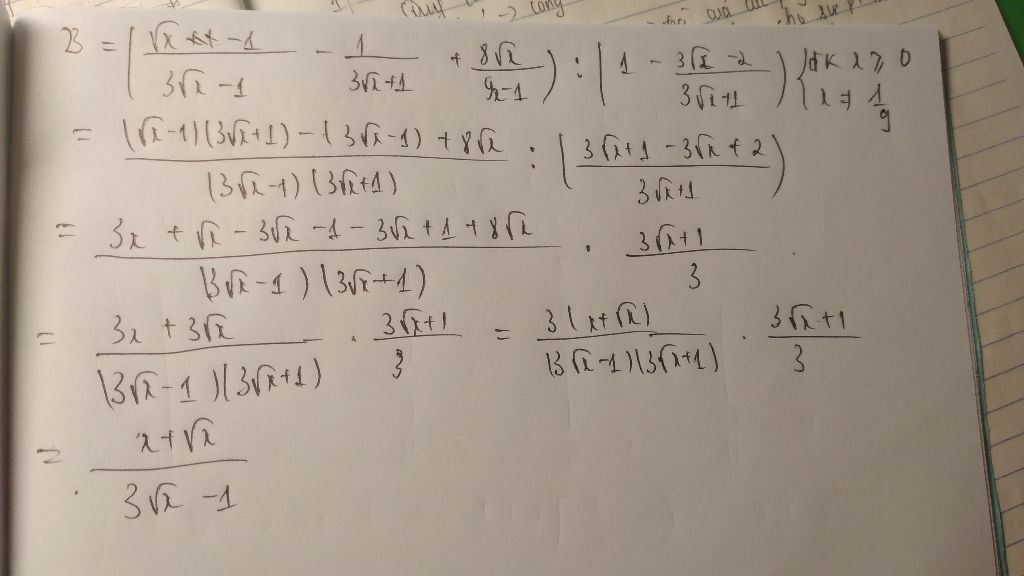 cộng
B = (√x - 1 / 3√x - 1 - 1 / 3√x + 1 + 8√x / 9x - 1) : (1 - 3√x - 2 / 3√x + 1) { đk x ≥ 0 x ≠ 1/9
= (√x - 1)(3√x + 1) - (3√x - 1) + 8√x / (3√x - 1)(3√x + 1) : (3√x + 1 - 3√x + 2 / 3√x + 1)
= 3x + √x - 3√x - 1 - 3√x + 1 + 8√x / (3√x - 1)(3√x + 1) . 3√x + 1 / 3
= 3x + 3√x / (3√x - 1)(3√x + 1) . 3√x + 1 / 3 = 3(x + √x) / (3√x - 1)(3√x + 1) . 3√x + 1 / 3
= x + √x / 3√x - 1